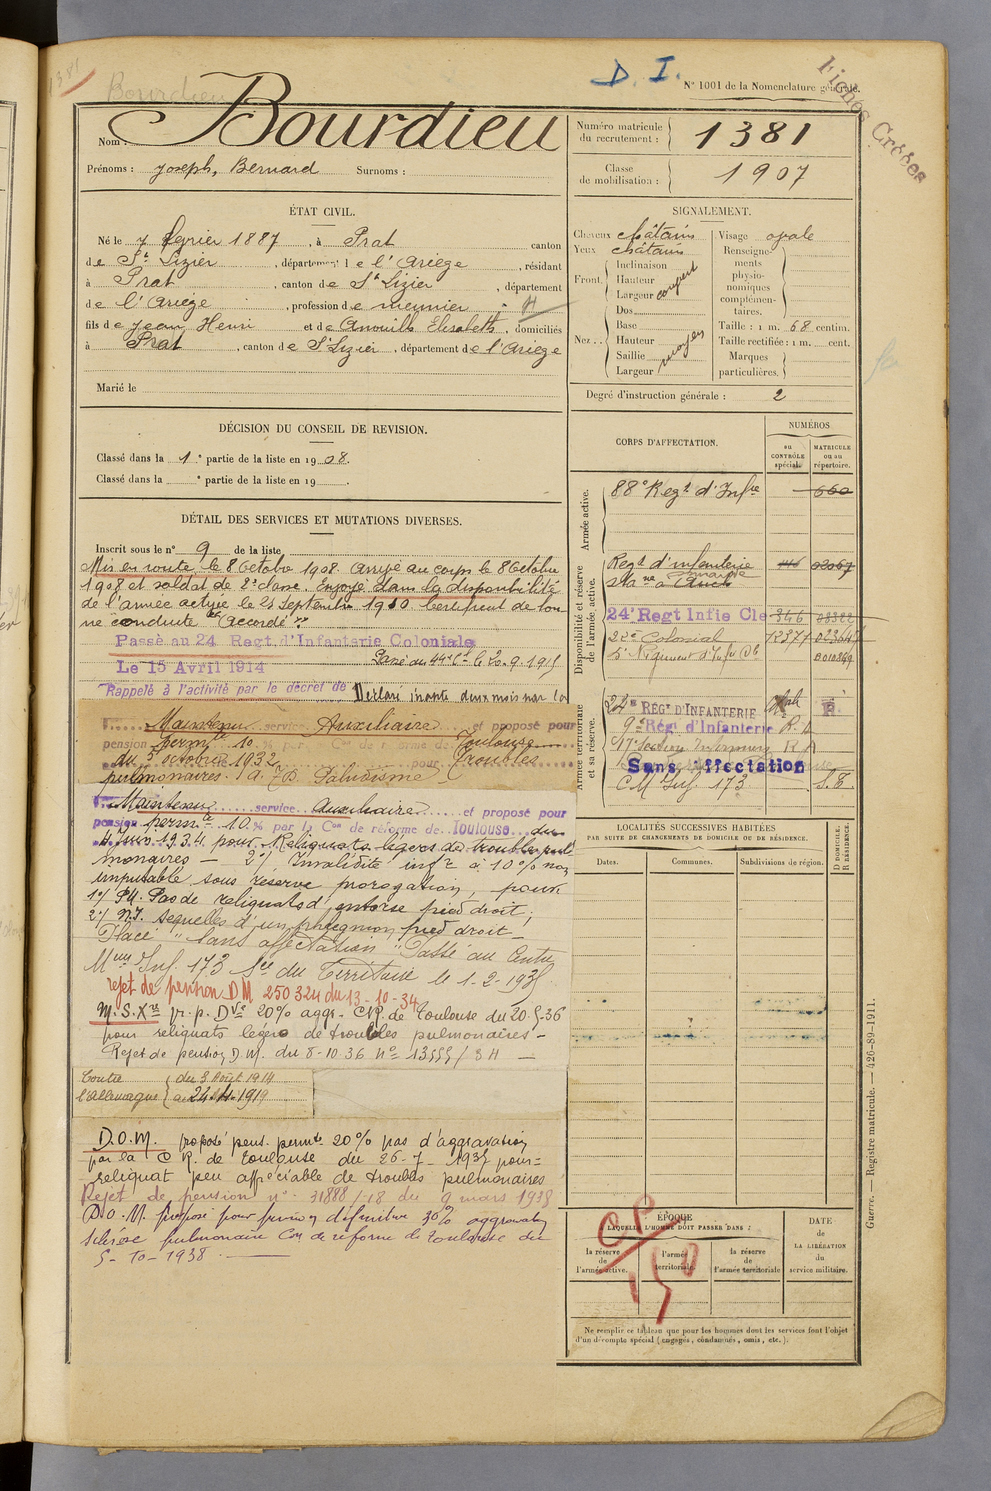 1381
Bourdieu
D. I.
N° 1001 de la Nomenclature générale.
Fiches Créées
Nom : Bourdieu
Prénoms : Joseph, Bernard Surnoms :
Numéro matricule du recrutement : 1381
Classe de mobilisation : 1907
ÉTAT CIVIL.
Né le 7 février 1887, à Prat canton
de St Lizier, département de l'Ariège, résidant
à Prat, canton de St Lizier, département
de l'Ariège, profession de meunier
fils de Jean Henri et de Anouilh Elisabeth, domiciliés
à Prat, canton de St Lizier, département de l'Ariège
Marié le
SIGNALEMENT.
Cheveux châtains
Yeux châtains
Front. Inclinaison
Hauteur
Largeur
Nez.. Dos
Base
Hauteur
Saillie
Largeur
moyen
Visage ovale
Renseignements physionomiques complémentaires.
Taille : 1 m. 68 centim.
Taille rectifiée : 1 m. cent.
Marques particulières.
Degré d'instruction générale : 2
DÉCISION DU CONSEIL DE REVISION.
Classé dans la 1e partie de la liste en 1908.
Classé dans la e partie de la liste en 19 .
DÉTAIL DES SERVICES ET MUTATIONS DIVERSES.
Inscrit sous le n° 9 de la liste
Mis en route le 8 Octobre 1908. Arrivé au corps le 8 Octobre
1908 et soldat de 2e classe. Envoyé dans la disponibilité
de l'armée active le 25 Septembre 1910 Certificat de bon
ne conduite "Accordé"
Passé au 24 Regt. d'Infanterie Coloniale
Le 15 Avril 1914
Passé au 44e Cal le 20.9.1915
Rappelé à l'activité par le décret de
Déclaré inapte deux mois par la
Maintenu service Auxiliaire et proposé pour
pension permte 10 % par la Con de réforme de Toulouse
du 3 octobre 1932 pour troubles
pulmonaires. Paludisme
Maintenu service Auxiliaire et proposé pour
pension permte 10 % par la Con de réforme de Toulouse du
4 Juin 1934 pour Reliquats légers de troubles pul
monaires — 2°/ Invalidité infre à 10% non
imputable sous réserve prorogation, pour
1°/ P.H. Pas de reliquats d'entorse pied droit ;
2°/ N.I. Sequelles d'un phlegmon pied droit —
Placé "Sans affectation" Passé au Centre
Mun Inf. 173 Sce du Territoire le 1-2-1935
rejet de pension DM 250324 du 13-10-34
M.S.Xre pr. p. Dve 20% aggr. CR. de Toulouse du 20.5.36
pour reliquats légers de troubles pulmonaires -
Rejet de pension D.M. du 8-10.36 n° 13555/3H —
Contre l'Allemagne du 3 Août 1914
au 24.4.1919
D.O.M. proposé pens. permte 20% pas d'aggravation
par la C R. de Toulouse du 26-7-1937 pour
reliquat peu appréciable de troubles pulmonaires
Rejet de pension n° 31888/18 du 9 mars 1938
D.O.M. proposé pour pension définitive 30% aggravation
Sclérose pulmonaire Con de réforme de Toulouse du
5-10-1938.
CORPS D'AFFECTATION.
NUMÉROS
au CONTRÔLE spécial.
MATRICULE ou au répertoire.
Armée active.
88e Regt d'Infie 660
Disponibilité et réserve de l'armée active.
Regt d'infanterie
24e Regt Infie Cle 346
22e Colonial 12377
5e Régiment d'Infie Cle
Armée territoriale et sa réserve.
RÉGt D'INFANTERIE
9e Rég. d'Infanterie R. A
17e Section Infirmiers R A
Sans affectation
C M Inf. 173 S.E.
LOCALITÉS SUCCESSIVES HABITÉES
PAR SUITE DE CHANGEMENTS DE DOMICILE OU DE RÉSIDENCE.
D DOMICILE. R RÉSIDENCE.
Dates. Communes. Subdivisions de région.
ÉPOQUE
À LAQUELLE L'HOMME DOIT PASSER DANS :
la réserve de l'armée active.
l'armée territoriale.
la réserve de l'armée territoriale
DATE de LA LIBÉRATION du service militaire.
CP
150
Ne remplir ce tableau que pour les hommes dont les services font l'objet
d'un décompte spécial (engagés, condamnés, omis, etc.).
Guerre. — Registre matricule. — 426-89-1911.